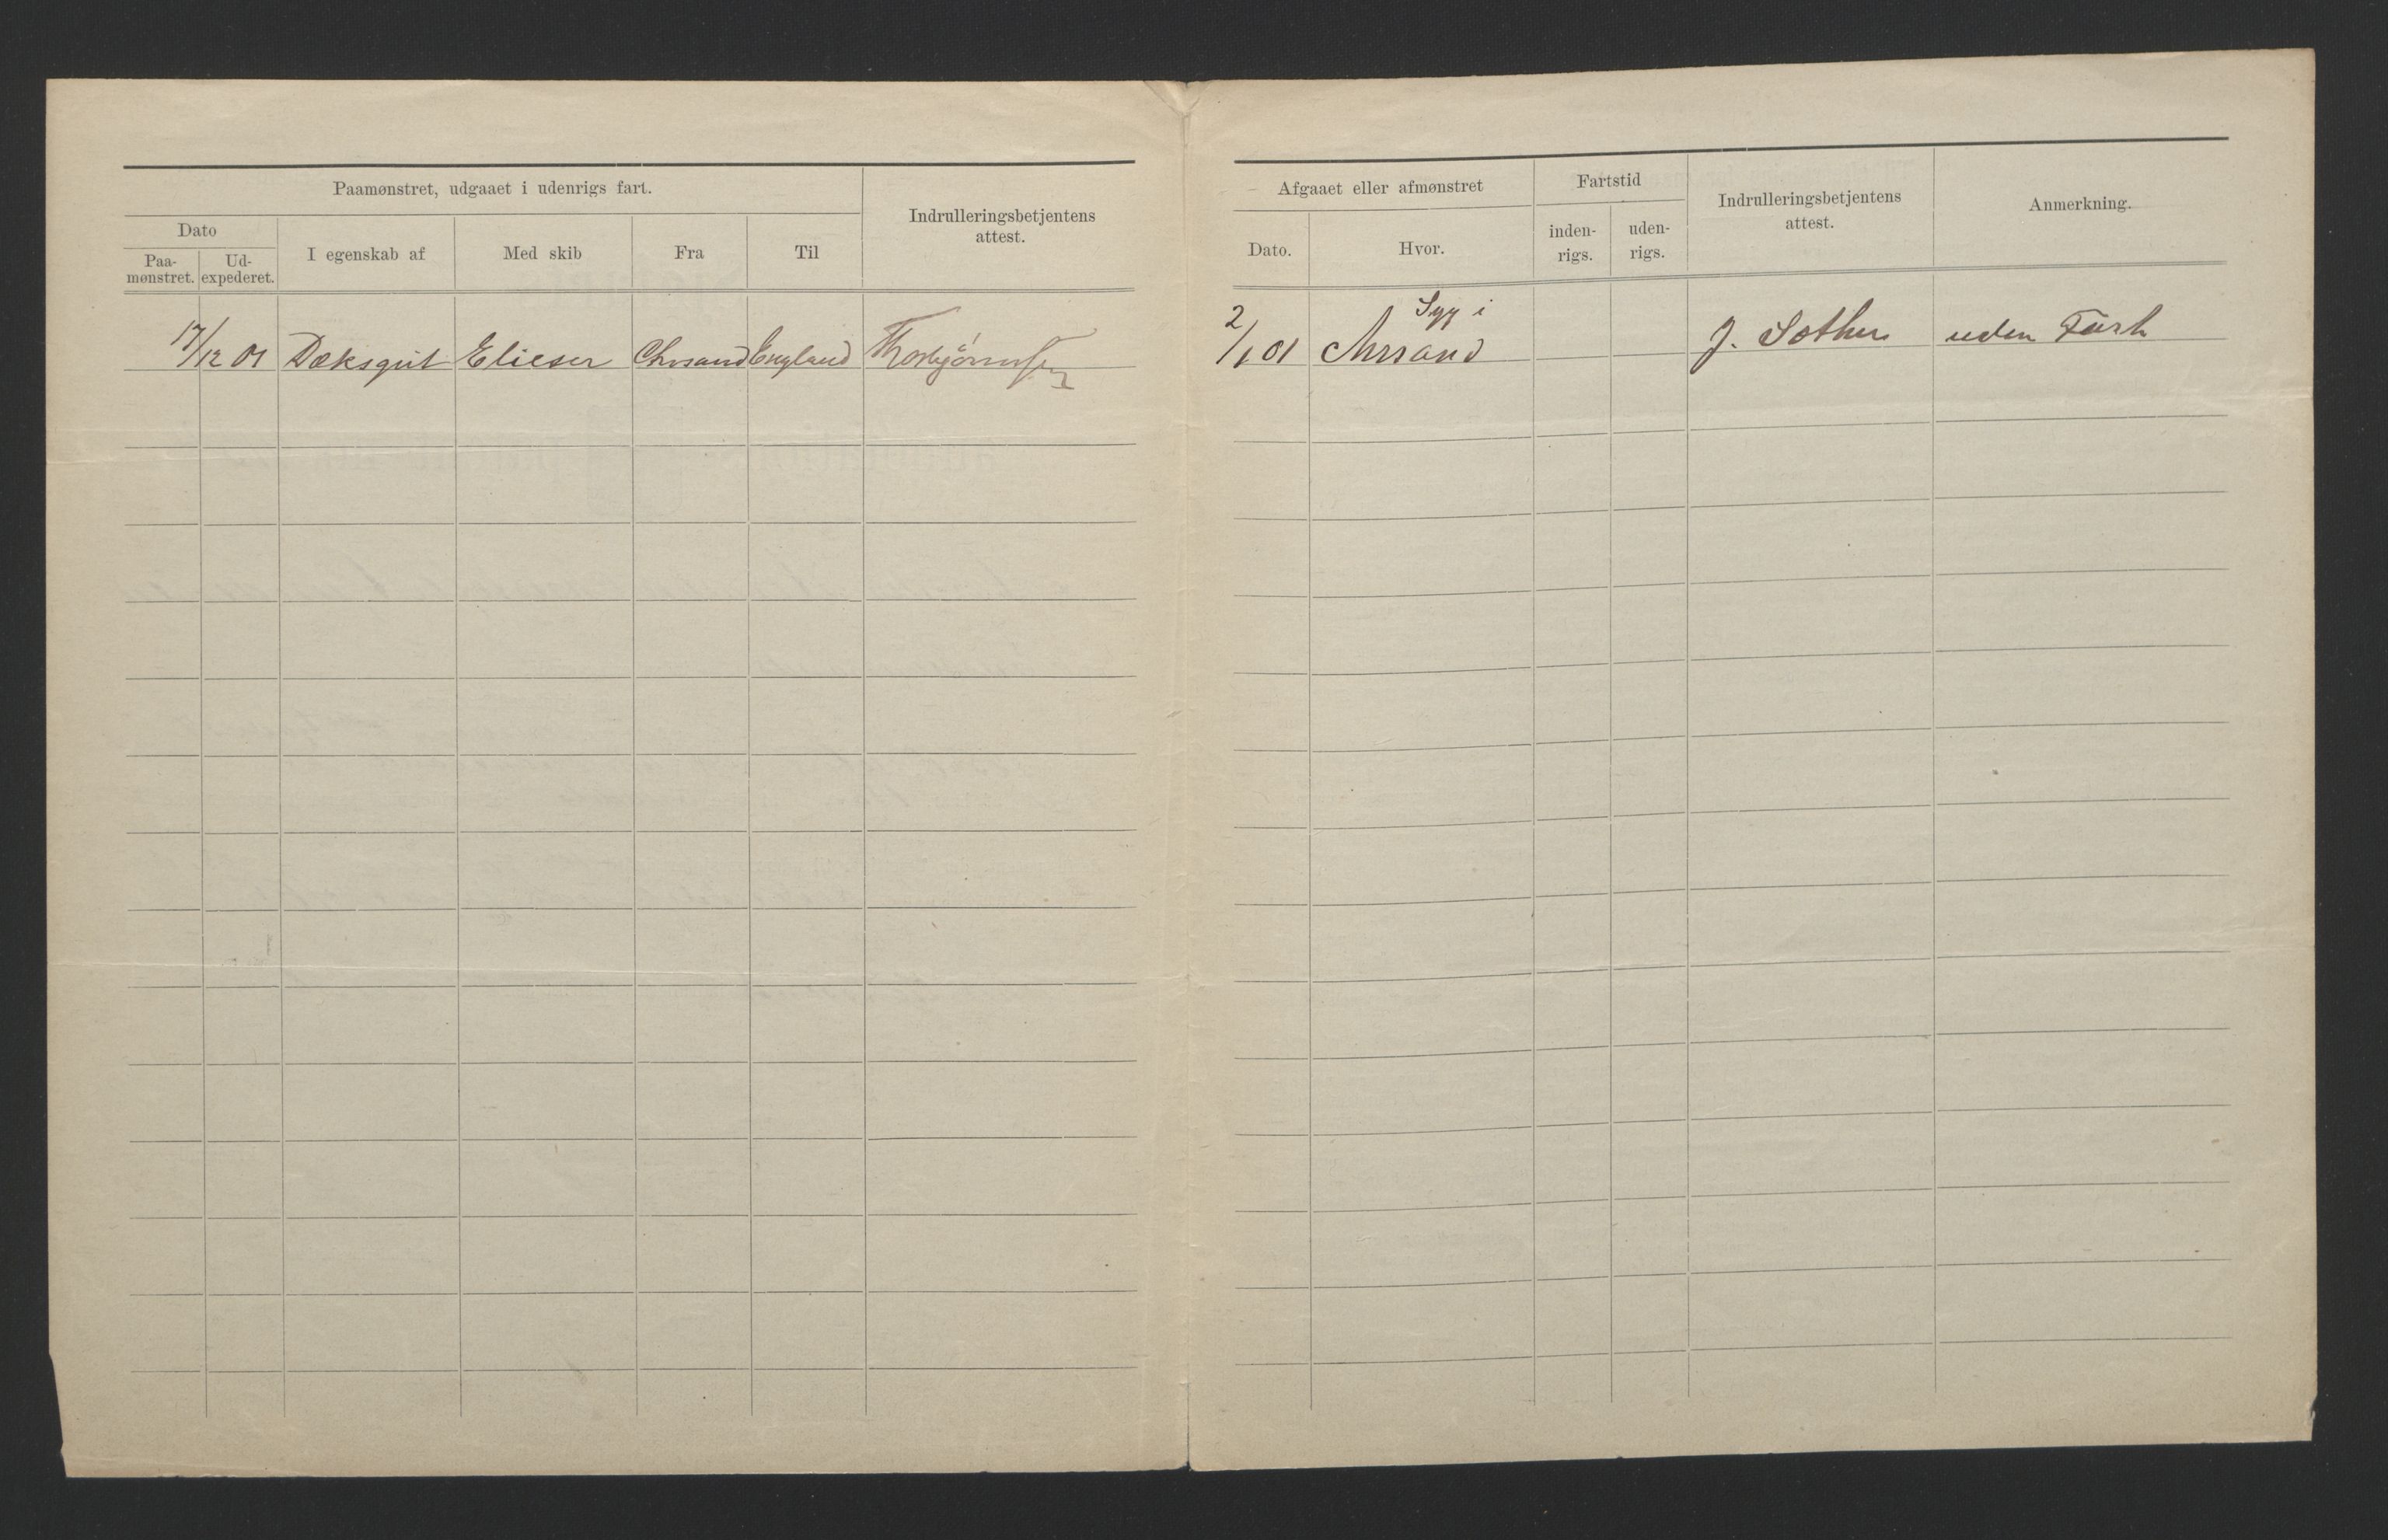 Paamønstret, udgaaet i udenrigs fart.
Indrulleringsbetjentens
attest.
Dato
Paa-
mønstret.
Ud-
expederet.
I egenskab af
Med skib
Fra
Til
17/12 01 Dæksgut Elieser Chrsand England Thorbjørnsen
Afgaaet eller afmønstret
Fartstid
Indrulleringsbetjentens
attest.
Anmerkning.
Dato.
Hvor.
inden-
rigs.
uden-
rigs.
Syg i
2/1 01 Chrsand J. uden Fart